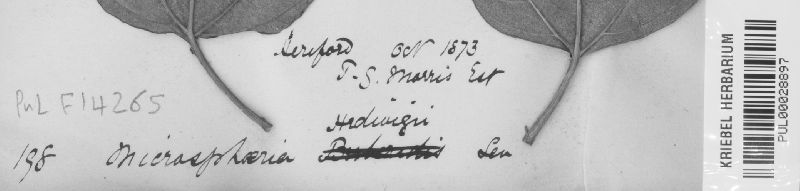 Hereford Oct 1873
T. G. Morris Est
PUL F14265
Hedwigii
198 Microsphæria Lev
KRIEBEL HERBARIUM
PUL00028897